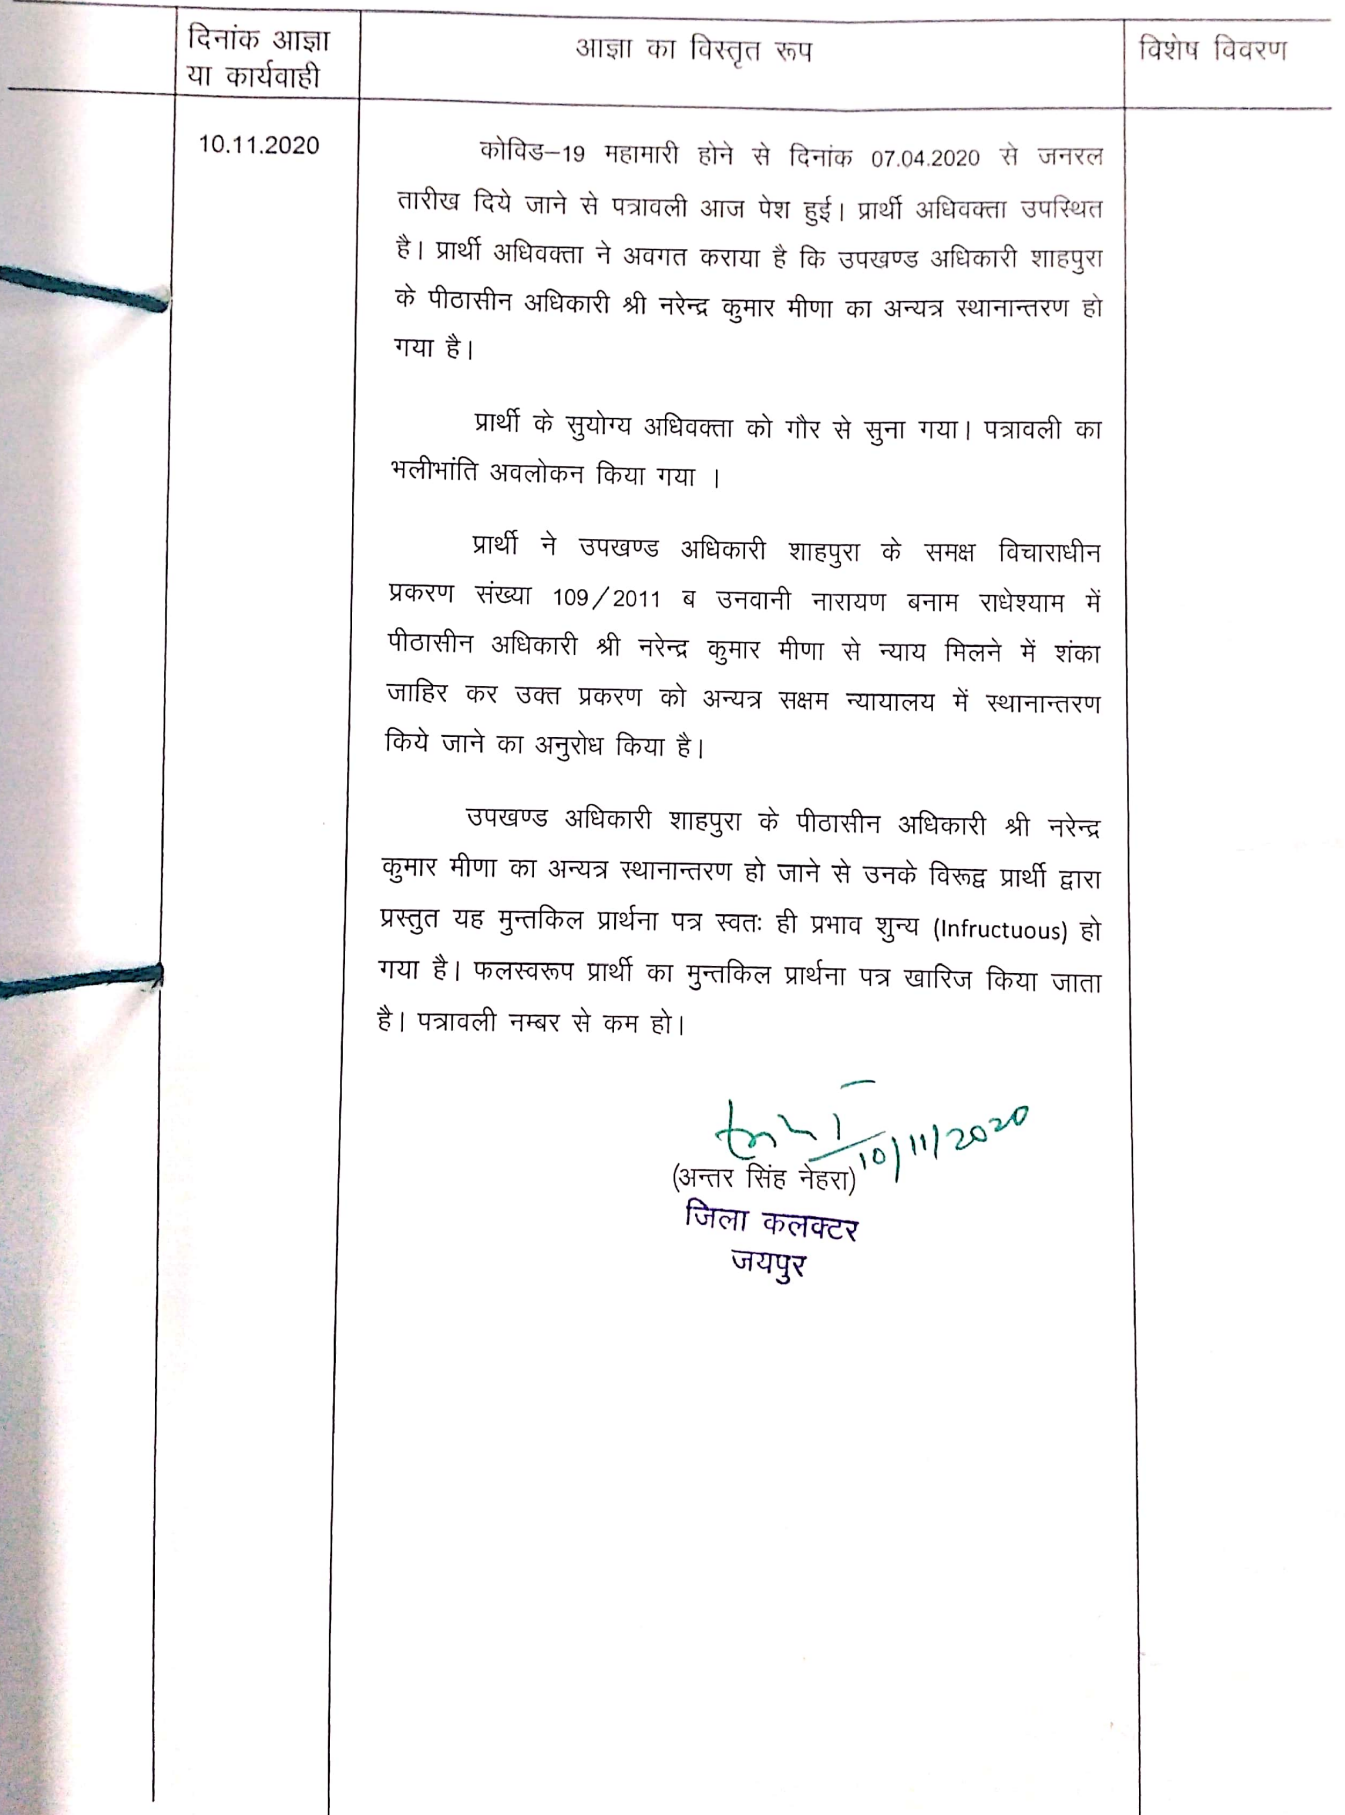 दिनांक आज्ञा
या कार्यवाही
आज्ञा का विस्तृत रूप
विशेष विवरण
10.11.2020
कोविड–19 महामारी होने से दिनांक 07.04.2020 से जनरल
तारीख दिये जाने से पत्रावली आज पेश हुई। प्रार्थी अधिवक्ता उपस्थित
है। प्रार्थी अधिवक्ता ने अवगत कराया है कि उपखण्ड अधिकारी शाहपुरा
के पीठासीन अधिकारी श्री नरेन्द्र कुमार मीणा का अन्यत्र स्थानान्तरण हो
गया है।
प्रार्थी के सुयोग्य अधिवक्ता को गौर से सुना गया। पत्रावली का
भलीभांति अवलोकन किया गया ।
प्रार्थी ने उपखण्ड अधिकारी शाहपुरा के समक्ष विचाराधीन
प्रकरण संख्या 109/2011 ब उनवानी नारायण बनाम राधेश्याम में
पीठासीन अधिकारी श्री नरेन्द्र कुमार मीणा से न्याय मिलने में शंका
जाहिर कर उक्त प्रकरण को अन्यत्र सक्षम न्यायालय में स्थानान्तरण
किये जाने का अनुरोध किया है।
उपखण्ड अधिकारी शाहपुरा के पीठासीन अधिकारी श्री नरेन्द्र
कुमार मीणा का अन्यत्र स्थानान्तरण हो जाने से उनके विरूद्व प्रार्थी द्वारा
प्रस्तुत यह मुन्तकिल प्रार्थना पत्र स्वतः ही प्रभाव शुन्य (Infructuous) हो
गया है। फलस्वरूप प्रार्थी का मुन्तकिल प्रार्थना पत्र खारिज किया जाता
है। पत्रावली नम्बर से कम हो।
10/11/2020
(अन्तर सिंह नेहरा)
जिला कलक्टर
जयपुर